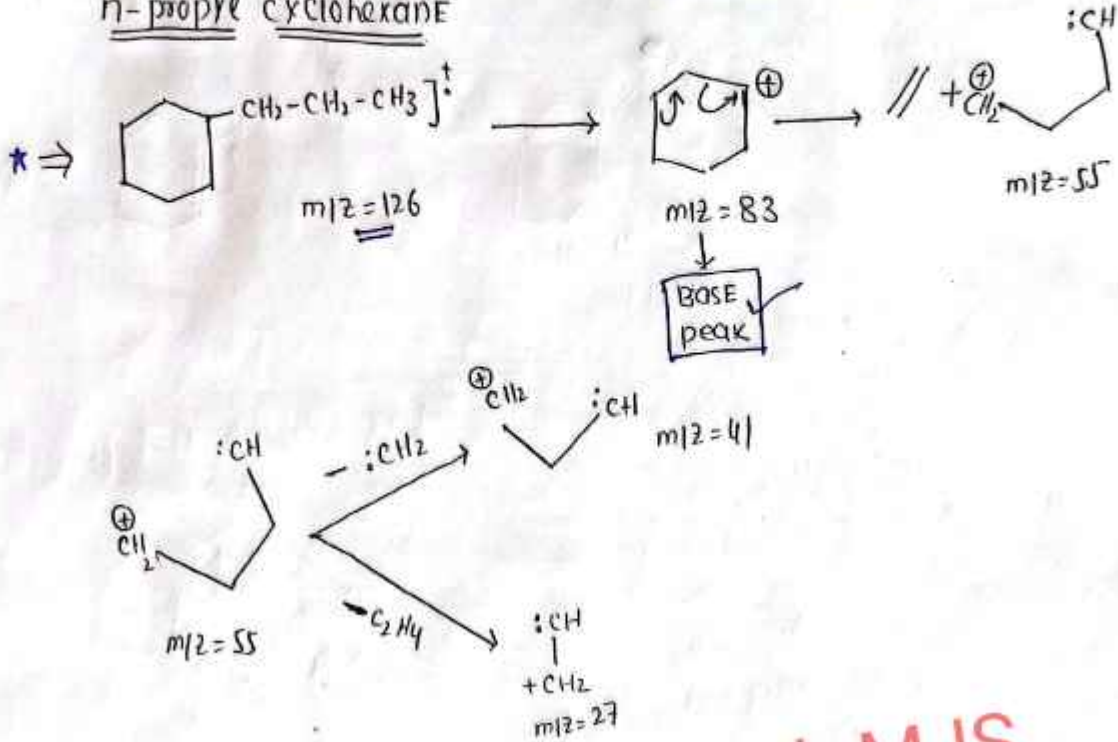 n-propyl cyclohexane
:CH
* ⇒ CH2-CH2-CH3]+• ⊕ // + ⊕CH2
m/z = 126
m/z = 83
m/z = 55
BASE
peak ✓
⊕CH2 :CH m/z = 41
:CH - :CH2
⊕
CH2
m/z = 55
-C2H4
:CH
+CH2
m/z = 27